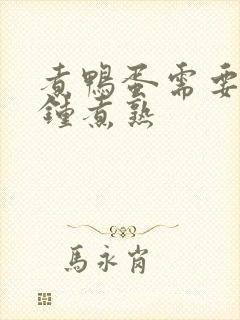 煮鴨蛋需要
鍾煮熟
馬永肖